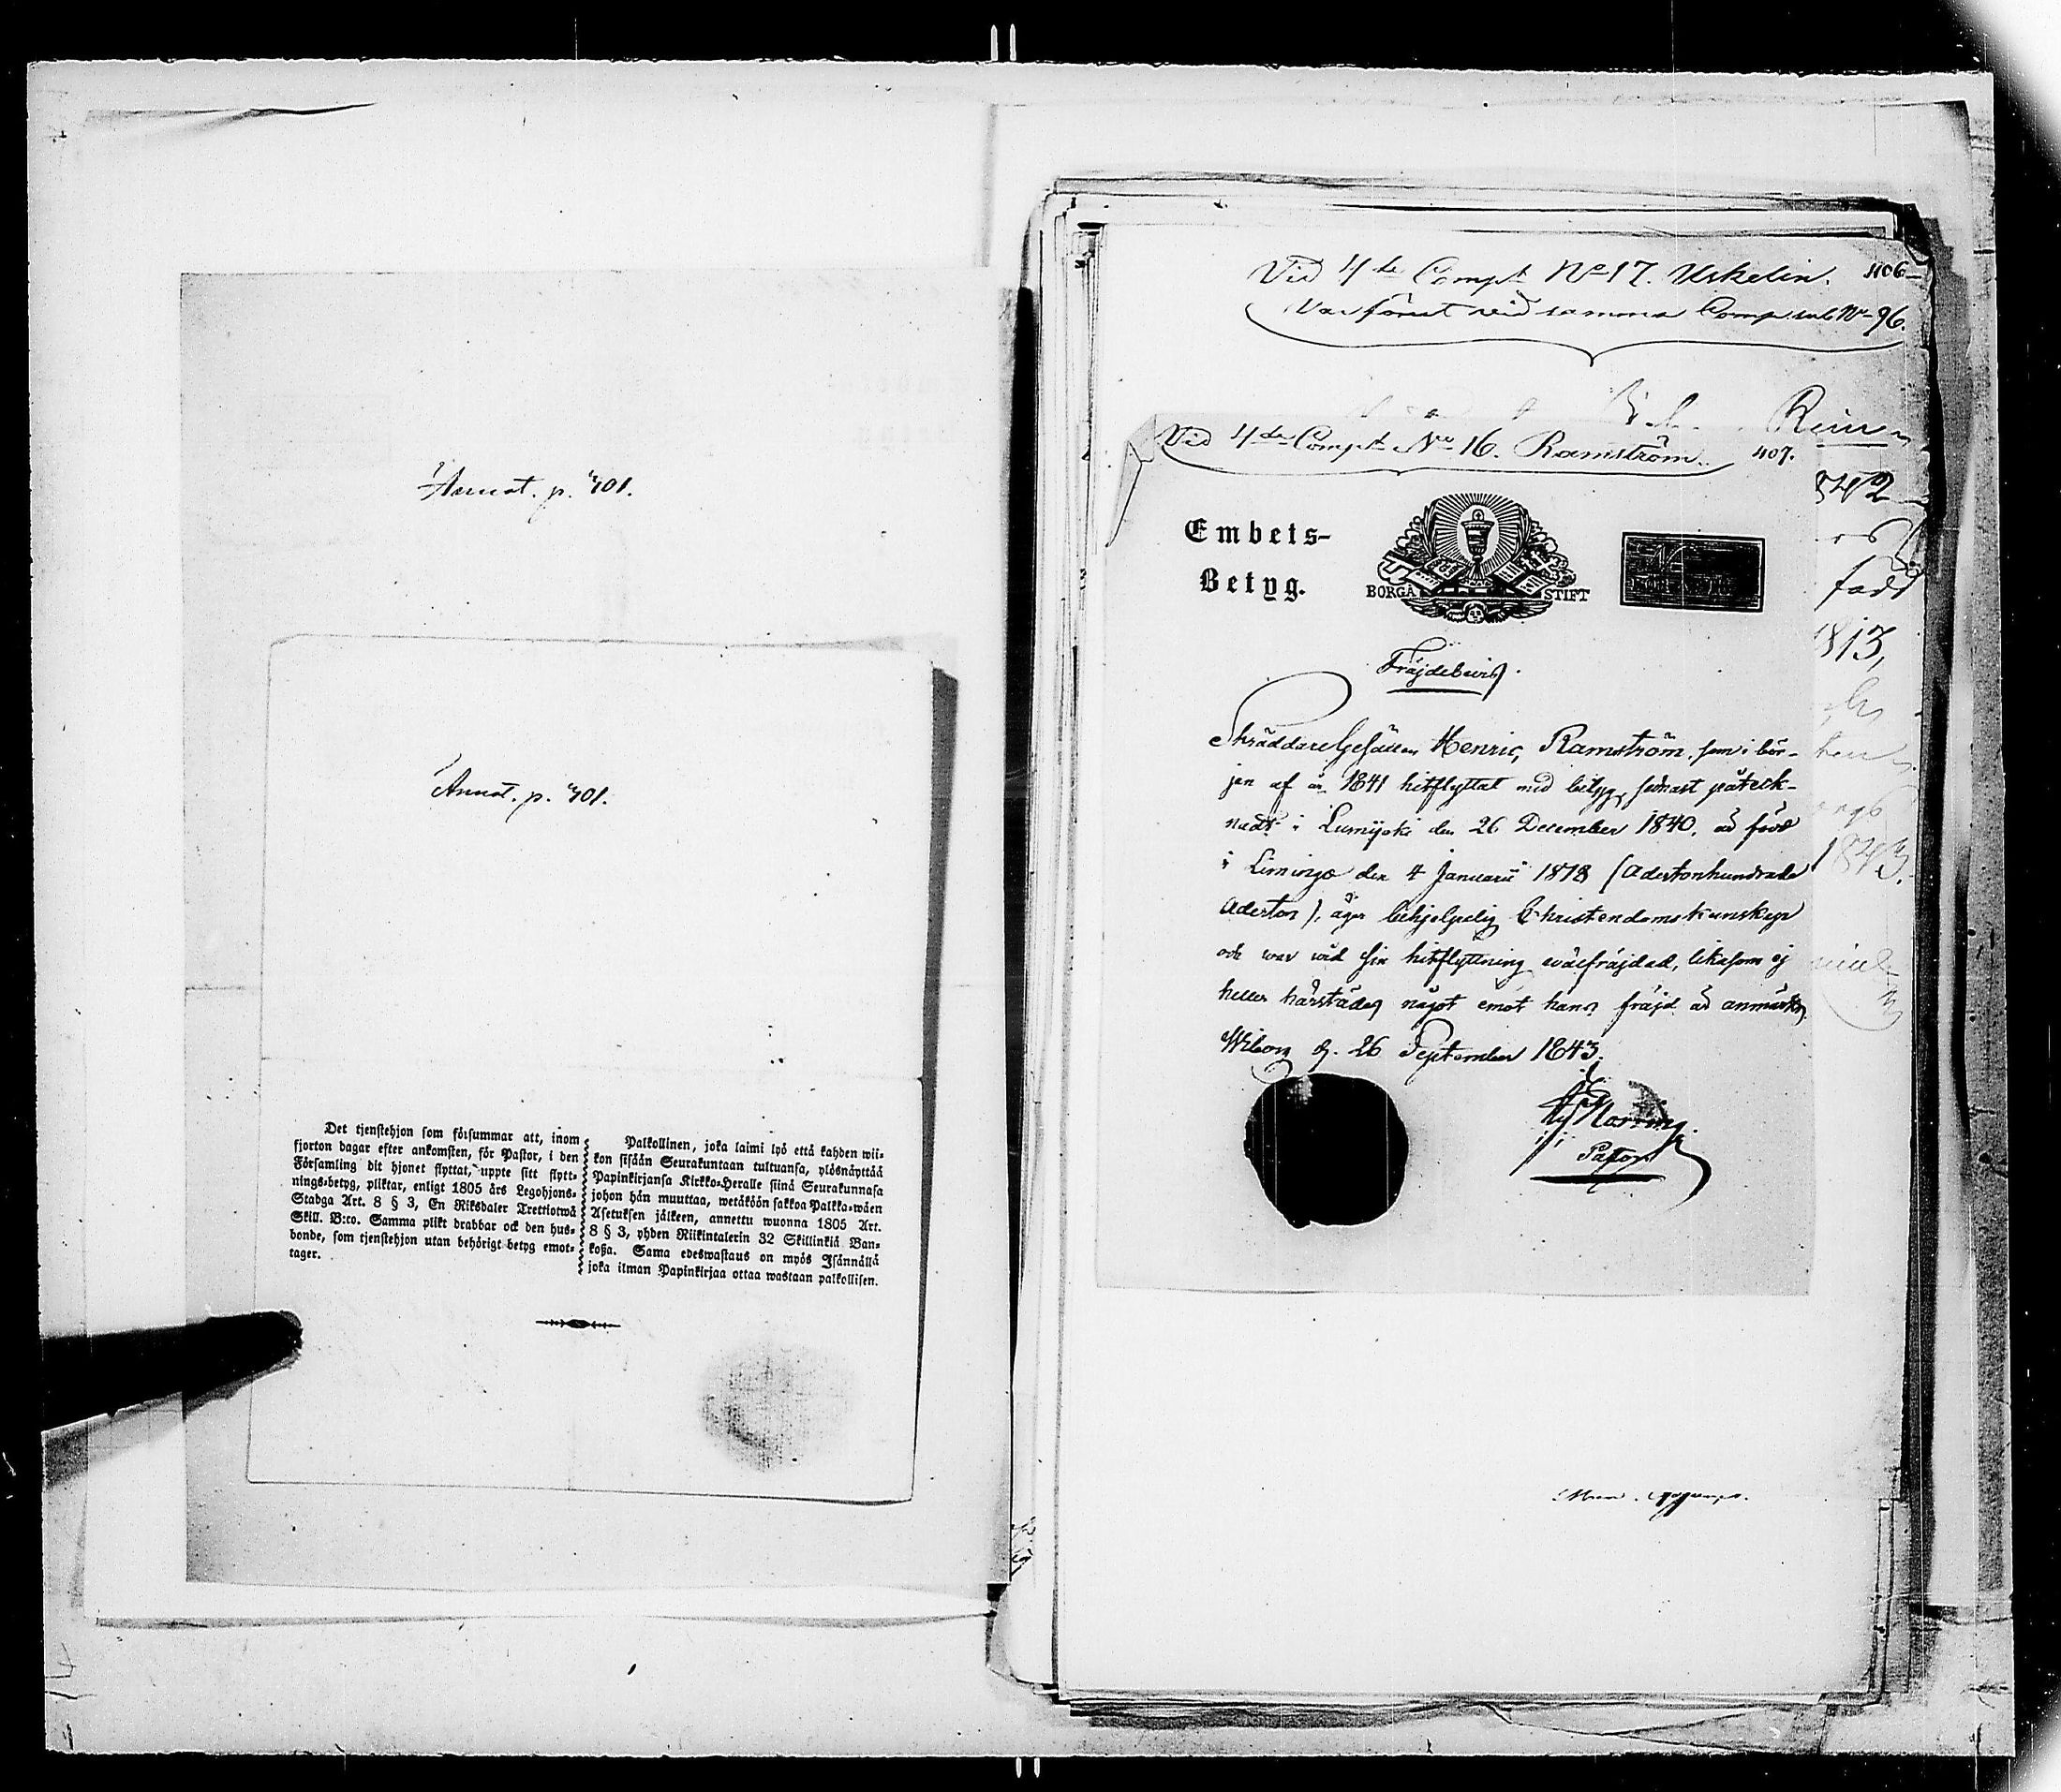 Annot. p. 401.
Annot. p. 401.
Det tjenstehjon som försummar att, inom
fjorton dagar efter ankomsten, för Pastor, i den
Församling dit hjonet flyttat, uppte sitt flytt-
nings-betyg, pliktar, enligt 1805 års Legohjons-
Stadga Art. 8 § 3, En Riksdaler Trettiotwå
Skill. B:co. Samma plikt drabbar ock den hus-
bonde, som tjenstehjon utan behörigt betyg emot-
tager.
Palkollinen, joka laimi lyö että kahden wii-
kon sisään Seurakuntaan tultuansa, ylösnäyttää
Papinkirjansa Kirkko-Heralle siinä Seurakunnasa
johon hän muuttaa, wetäköön sakkoa Palkka-wäen
Asetuksen jälkeen, annettu wuonna 1805 Art.
8 § 3, yhden Riikintalerin 32 Skillinkiä Ban-
koßa. Sama edeswastaus on myös Isännällä
joka ilman Papinkirjaa ottaa wastaan palkollisen.
Vid 4de Compt No 17. Uskelin. 406
Var förut vid samma Comp. sub No 96.
Rein
Vid 4de Compt No 16. Ramström. 407.
342
Embets-
Betyg.
BORGÅ STIFT
född
1813,
Fräjdebevis.
Skräddare Gesällen Henric Ramström, som i bör-
jan af år 1841 hitflyttat med betyg, sednast påteck-
nadt i Lumijoki den 26 December 1840, är född
i Limingo den 4 Januarii 1818 (Adertonhundrade
1843.
Aderton), äger behjelpelig Christendomskunskap
och war wid sin hitflyttning wälfräjdad, likasom ej
heller härstädes något emot hans fräjd är anmärkt.
Wiborg d. 26 September 1843.
Pastor